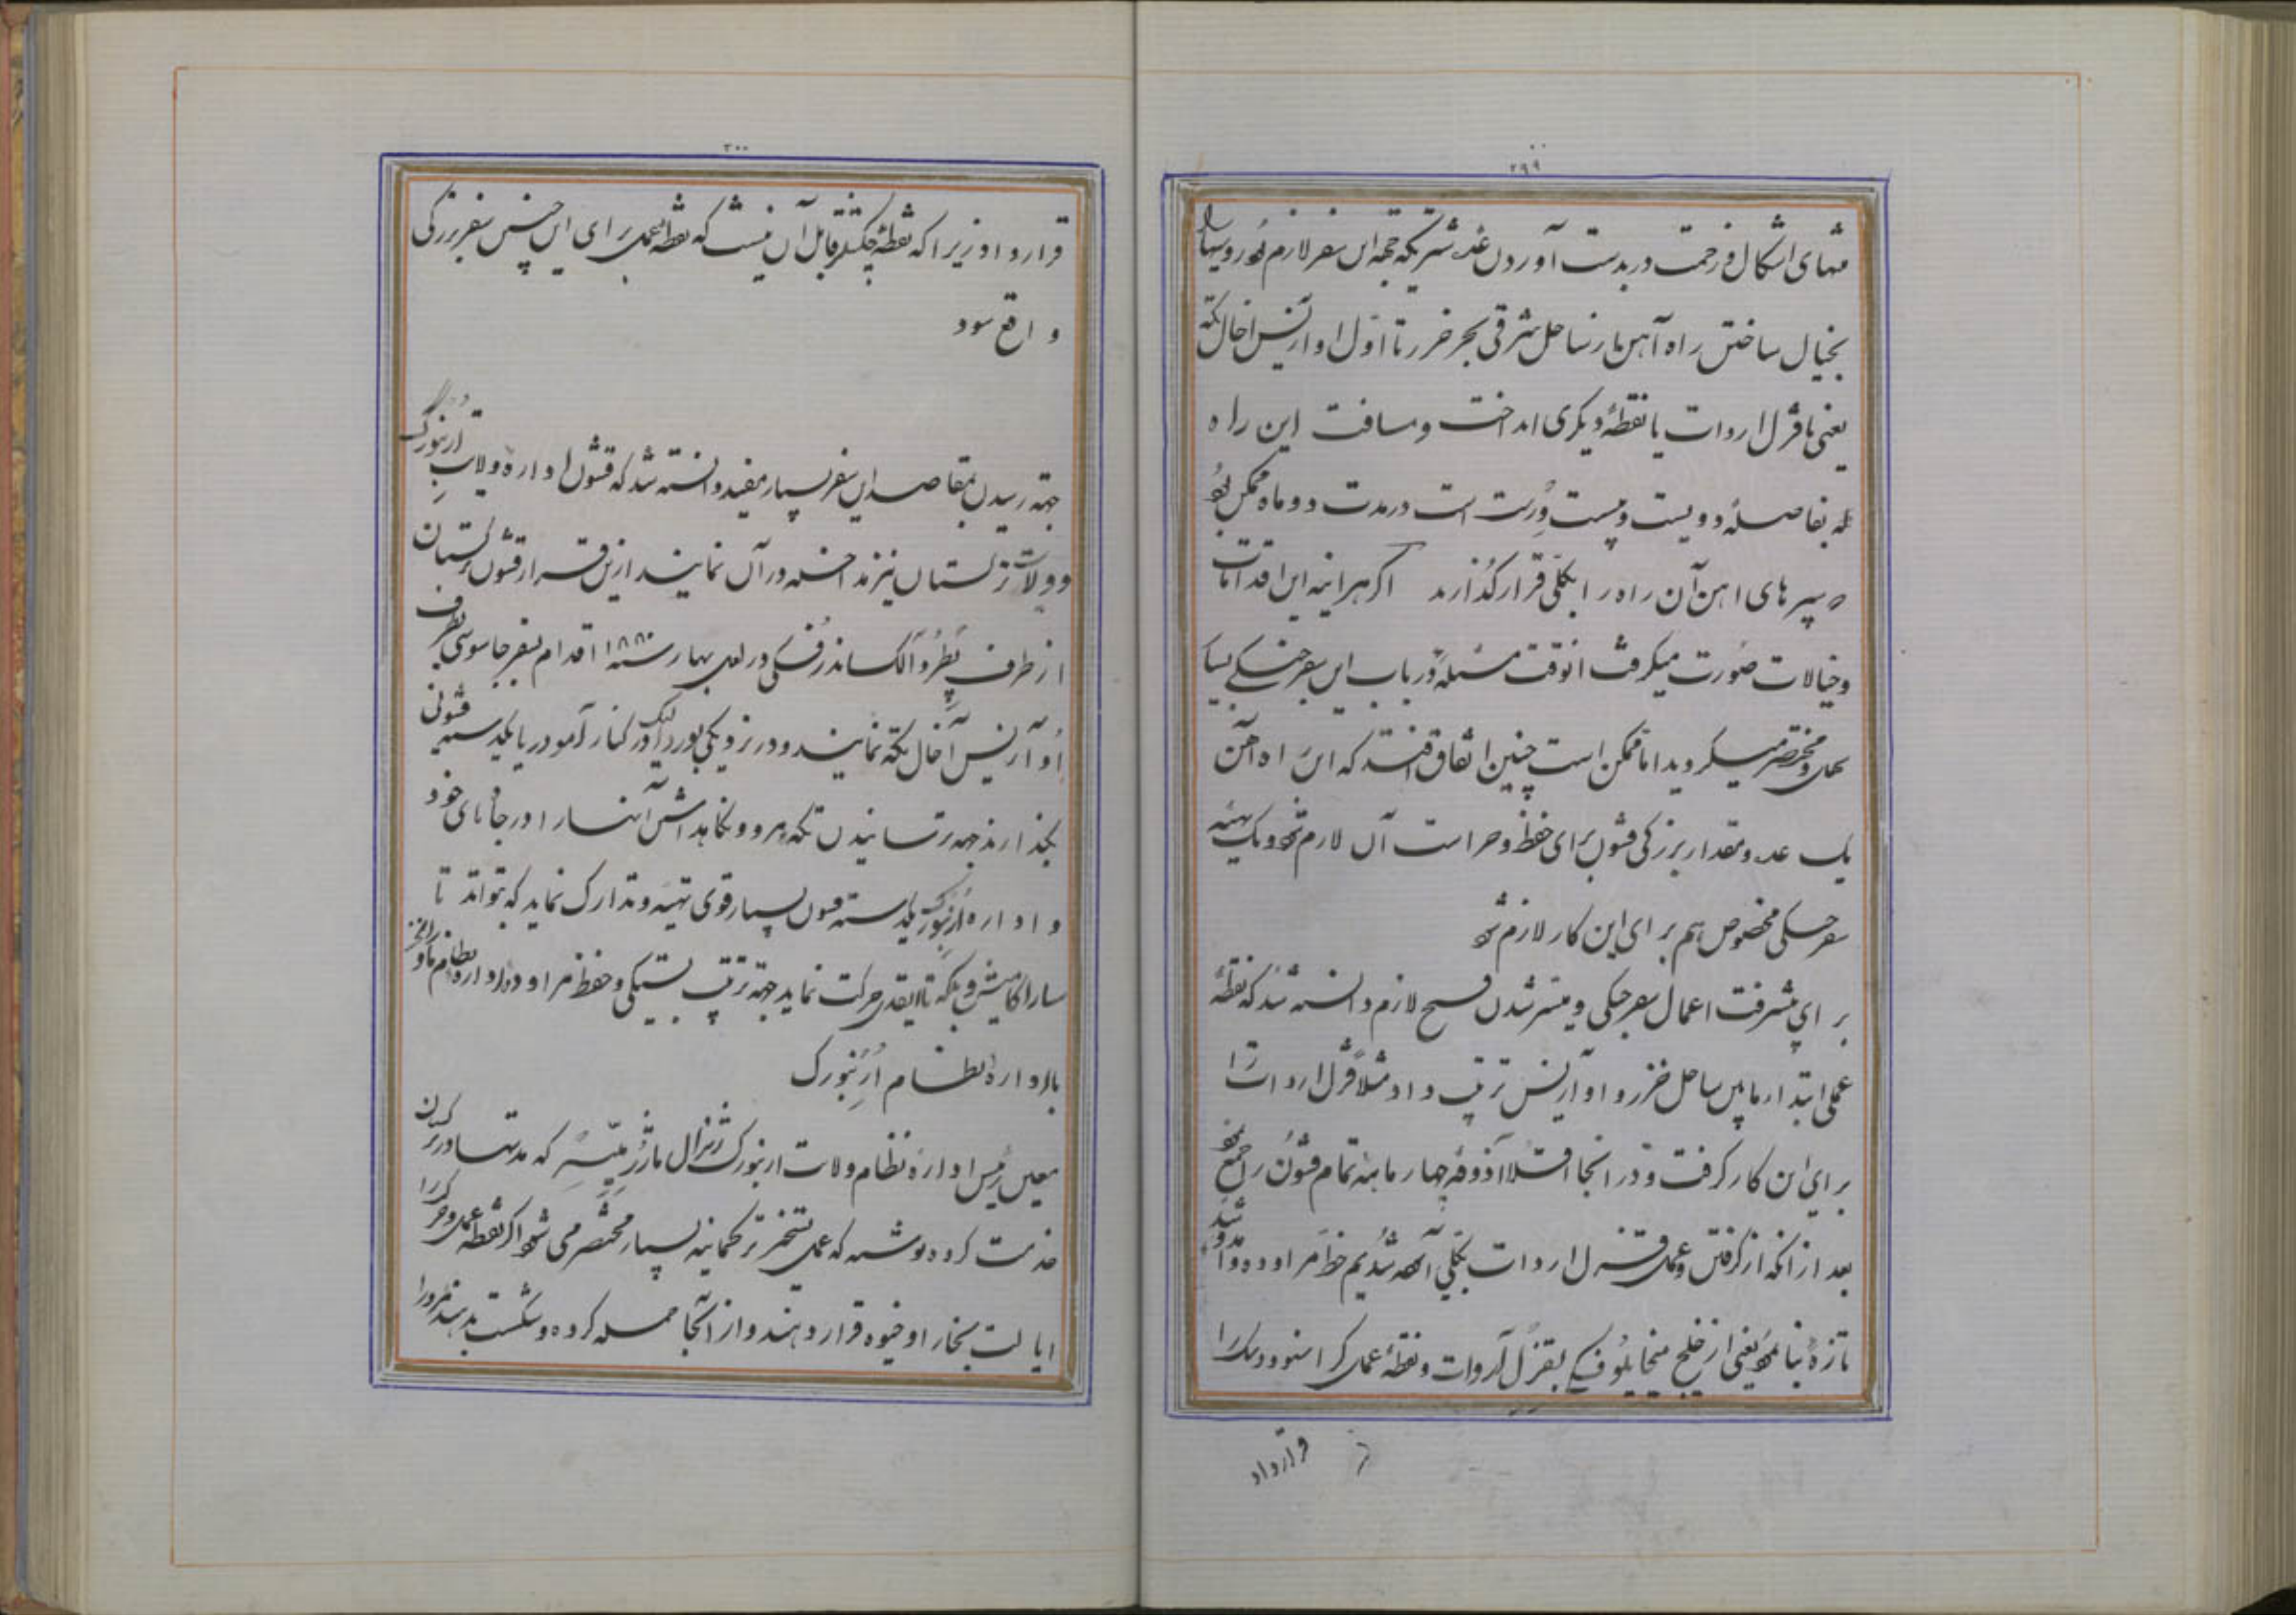 ۲۹۹
منتهای اشکال و زحمت در بدست آوردن عدد شتریکه جهة این سفر لازم بود روسها را
بخیال ساختن راه آهن از ساحل شرقی بحر خزر تا اول او آزیس اخال تکه
یعنی تا قزل اروات یا نقطهٔ دیکری انداخت و مسافت این راه
که بفاصلهٔ دویست و بیست ورست است در مدت دو ماه ممکن بود
که سپرهای اهن آن راه را بکلی قرار کذارند اکر هراینه این اقدامات
و خیالات صورت میکرفت انوقت مسئله در باب این سفر جنکی بسیار
سهل و مختصر میکردید اما ممکن است چنین اتفاق افتد که این راه آهن
یک عدد و مقدار بزرکی قشون برای حفظ و حراست آن لازم شود و یک تهیهٔ
سفر جنکی مخصوص هم برای این کار لازم شود
برای پیشرفت اعمال سفر جنکی و میسر شدن فتح لازم دانسته شد که نقطهٔ
عملی ابتدا در مابین ساحل خزر و او آزیس ترتیب داد مثلا قزل اروات را
برای این کار کرفت و در انجا اقلا آذوقهٔ چهار ماههٔ تمام قشون را جمع نمود
بعد از انکه از کرفتن و عملی قزل اروات بکلی آسوده شدیم خط مراوده و آمد و شد
تازهٔ بنا نمود یعنی از خلیج میخایلوفسکی بقزل آروات و نقطهٔ عملی کراسنوودسک را
قرارداد
۳۰۰
قرار داد زیرا که نقطهٔ چکشلر قابل آن نیست که نقطهٔ عملی برای این جنس سفر بزرکی
واقع شود
جهة رسیدن بمقاصد این سفر بسیار مفید دانسته شد که قشون ادارهٔ ولایت ارنبورک
و ولایت ترکستان نیز مداخله در آن نمایند ازین قرار قشون ترکستان
از طرف پطرو آلکساندرفسکی در اول بهار سنه ۱۸۸۰ اقدام بسفر جاسوسی بطرف
او آزیس آخال تکه نمایند و در نزدیکی بوردالک در کنار آمودریا یکدسته قشونی
بکذارند جهه ترسانیدن تکهٔ مرو و نکاهداشتن آنها را در جاهای خود
و ادارهٔ ارنبورک یکدسته قشون بسیار قوی تهیه و تدارک نماید که بتواند تا
ساراکامیش و بلکه تا ایقدی حرکت نماید جهة ترتیب بستکی و حفظ مراودهٔ ادارهٔ نظام ماوراءخزر
با ادارهٔ نظام ارنبورک
معین رئیس ادارهٔ نظام ولایت ارنبورک ژنرال ماژر میسر که مدتها در ترکستان
خدمت کرده نوشته که عمل تسخیر ترکمانیه بسیار مختصر می شود اکر نقطهٔ عمل و حرکت را
ایالت بخارا و خیوه قرار دهند و از آنجا حمله کرده و شکست بدهند مرو را